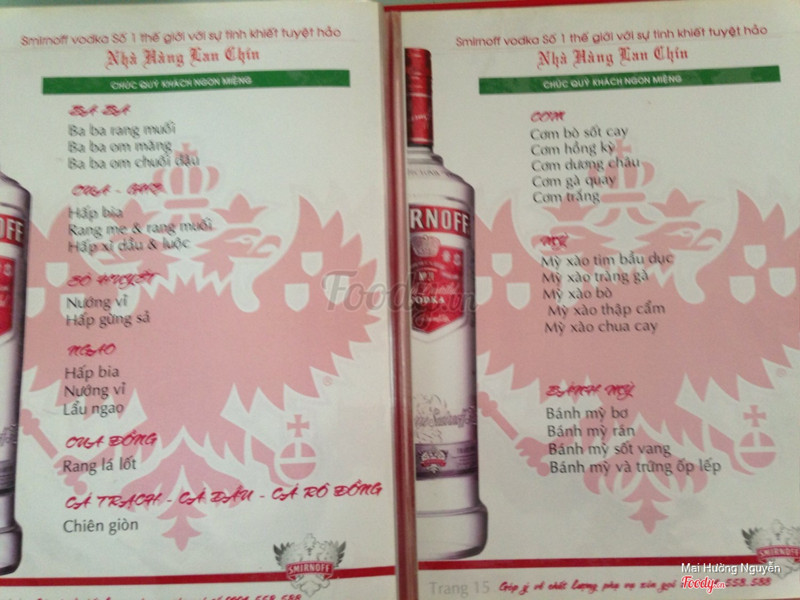 Smirnoff vodka Số 1 thế giới với sự tinh khiết tuyệt hảo
Nhà Hàng Lan Chín
CHÚC QUÝ KHÁCH NGON MIỆNG
BA BA
Ba ba rang muối
Ba ba om măng
Ba ba om chuối đậu
CUA - GHẸ
Hấp bia
Rang me & rang muối
Hấp xì dầu & luộc
SÒ HUYẾT
Nướng vỉ
Hấp gừng sả
NGAO
Hấp bia
Nướng vỉ
Lẩu ngao
CUA ĐỒNG
Rang lá lốt
CÁ TRẠCH - CÁ DẦU - CÁ RÔ ĐỒNG
Chiên giòn
SMIRNOFF
Smirnoff vodka Số 1 thế giới với sự tinh khiết tuyệt hảo
Nhà Hàng Lan Chín
CHÚC QUÝ KHÁCH NGON MIỆNG
CƠM
Cơm bò sốt cay
Cơm hồng kỳ
Cơm dương châu
Cơm gà quay
Cơm trắng
MỲ
Mỳ xào tim bầu dục
Mỳ xào tràng gà
Mỳ xào bò
Mỳ xào thập cẩm
Mỳ xào chua cay
BÁNH MỲ
Bánh mỳ bơ
Bánh mỳ rán
Bánh mỳ sốt vang
Bánh mỳ và trứng ốp lếp
RNOFF
VODKA
Trang 15
Góp ý về chất lượng, phục vụ xin gọi
558.588
Foody.vn
Mai Hường Nguyễn
Foody.vn